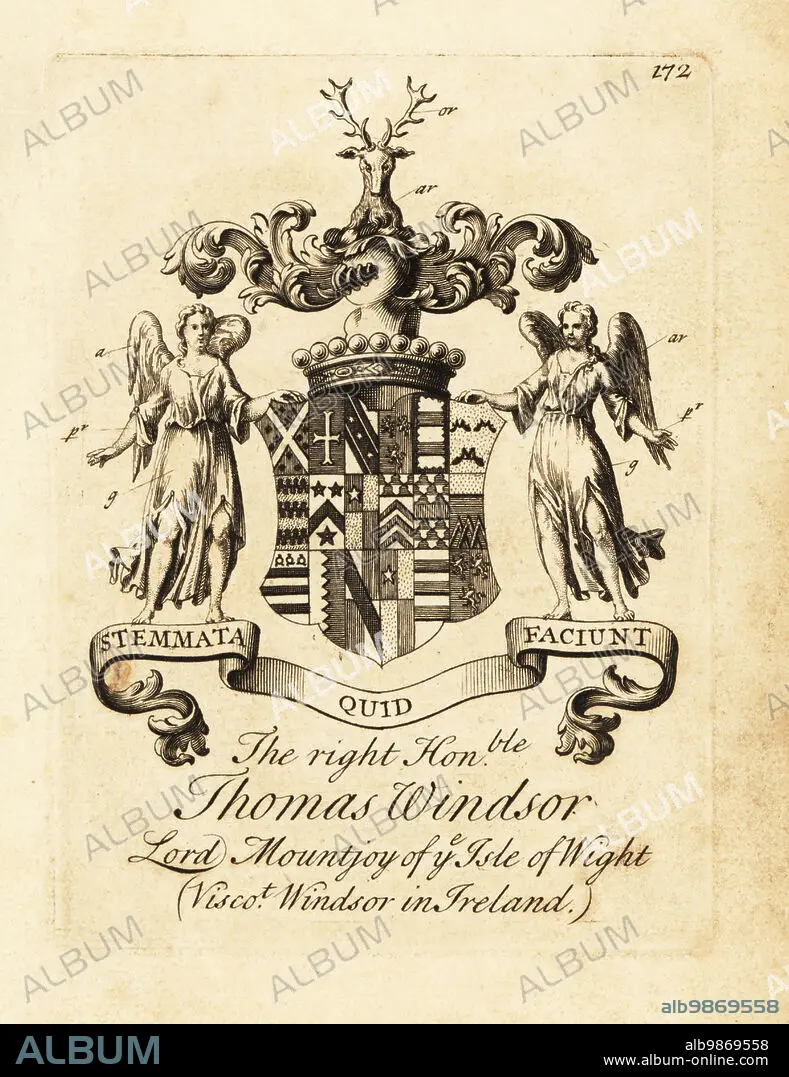 172
or
ar
a
ar
pr
pr
g
g
STEMMATA QUID FACIUNT
The right Hon.ble
Thomas Windsor
Lord Mountjoy of ye Isle of Wight
(Visco.t Windsor in Ireland.)
alb9869558
ALBUM
alb9869558
www.album-online.com